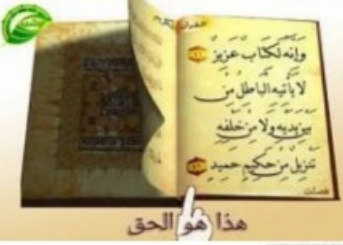 القرآن الكريم
وإنه لكتاب عزيز
لا يأتيه الباطل من
بين يديه ولا من خلفه
تنزيل من حكيم حميد
فصلت
هذا هو الحق